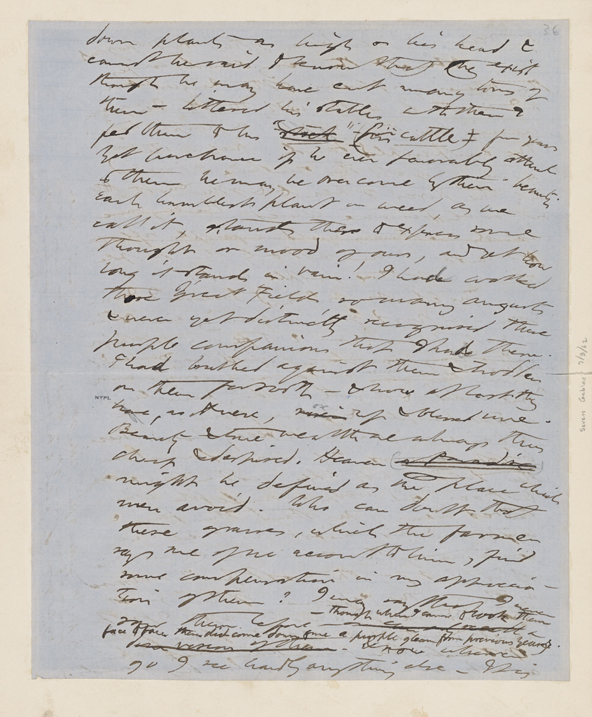 36
down plants as high as his head &
cannot be said I know that they exist
though he may have cut many tons of
them – littered his stables with them &
fed them to his "stock" (his cattle) for years
Yet perchance if he ever favorably attend
to them he may be overcome by their beauty
Each humblest plant or weed, as we
call it, stands there to express some
thought or mood of ours, and yet how
long it stands in vain! I had walked
those Great Fields so many Augusts
& never yet distinctly recognised these
purple companions that I had there.
I had brushed against them & trodden
on them forsooth – & now at last they
NYPL
have, as it were, up & blessed me.
Beauty & true wealth are always thus
cheap & despised. Heaven (or Paradise) 
might be defined as the place which
men avoid. Who can doubt that
these grasses, which the farmer
says are of no account to him, find
some compensation in my apprecia-
tion of them? I may say that I never
saw them before –
– though when I came to look them
face to face there did come down to me a purple gleam from previous years &
now wherever
go I see hardly anything else – It is